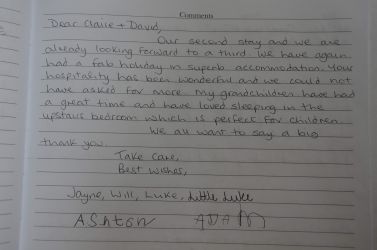 Comments
Dear Claire + David,
Our second stay and we are
already looking forward to a third. We have again
had a fab holiday in superb accommodation. Your
hospitality has been wonderful and we could not
have asked for more. My grandchildren have had
a great time and have loved sleeping in the
upstairs bedroom which is perfect for children.
We all want to say a big
thank you.
Take care,
Best wishes,
Jayne, Will, Luke, Little Luke
AShton ADAM